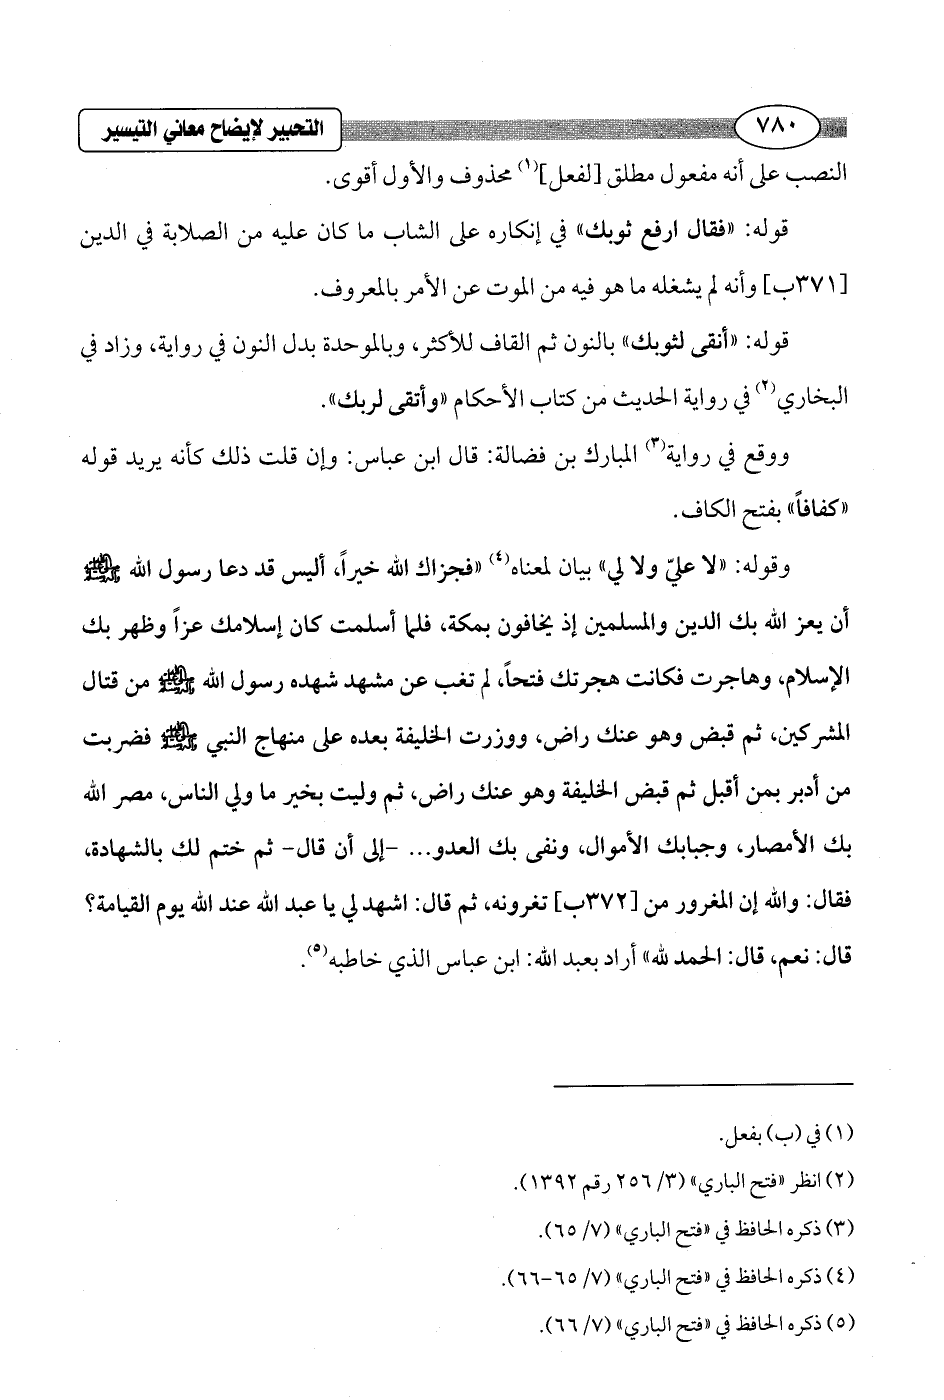 التحبير لإيضاح معاني التيسير
٧٨٠
النصب على أنه مفعول مطلق [لفعل](١) محذوف والأول أقوى.
قوله: «فقال ارفع ثوبك» في إنكاره على الشاب ما كان عليه من الصلابة في الدين
[٣٧١ب] وأنه لم يشغله ما هو فيه من الموت عن الأمر بالمعروف.
قوله: «أنقى لثوبك» بالنون ثم القاف للأكثر، وبالموحدة بدل النون في رواية، وزاد في
البخاري(٢) في رواية الحديث من كتاب الأحكام «وأتقى لربك».
ووقع في رواية(٣) المبارك بن فضالة: قال ابن عباس: وإن قلت ذلك كأنه يريد قوله
«كفافاً» بفتح الكاف.
وقوله: «لا عليّ ولا لي» بيان لمعناه(٤) «فجزاك الله خيراً، أليس قد دعا رسول الله ﷺ
أن يعز الله بك الدين والمسلمين إذ يخافون بمكة، فلما أسلمت كان إسلامك عزاً وظهر بك
الإسلام، وهاجرت فكانت هجرتك فتحاً، لم تغب عن مشهد شهده رسول الله ﷺ من قتال
المشركين، ثم قبض وهو عنك راض، ووزرت الخليفة بعده على منهاج النبي ﷺ فضربت
من أدبر بمن أقبل ثم قبض الخليفة وهو عنك راض، ثم وليت بخير ما ولي الناس، مصر الله
بك الأمصار، وجبابك الأموال، ونفى بك العدو... -إلى أن قال- ثم ختم لك بالشهادة،
فقال: والله إن المغرور من [٣٧٢ب] تغرونه، ثم قال: اشهد لي يا عبد الله عند الله يوم القيامة؟
قال: نعم، قال: الحمد لله» أراد بعبد الله: ابن عباس الذي خاطبه(٥).
(١) في (ب) بفعل.
(٢) انظر «فتح الباري» (٣/ ٢٥٦ رقم ١٣٩٢).
(٣) ذكره الحافظ في «فتح الباري» (٧/ ٦٥).
(٤) ذكره الحافظ في «فتح الباري» (٧/ ٦٥-٦٦).
(٥) ذكره الحافظ في «فتح الباري» (٧/ ٦٦).